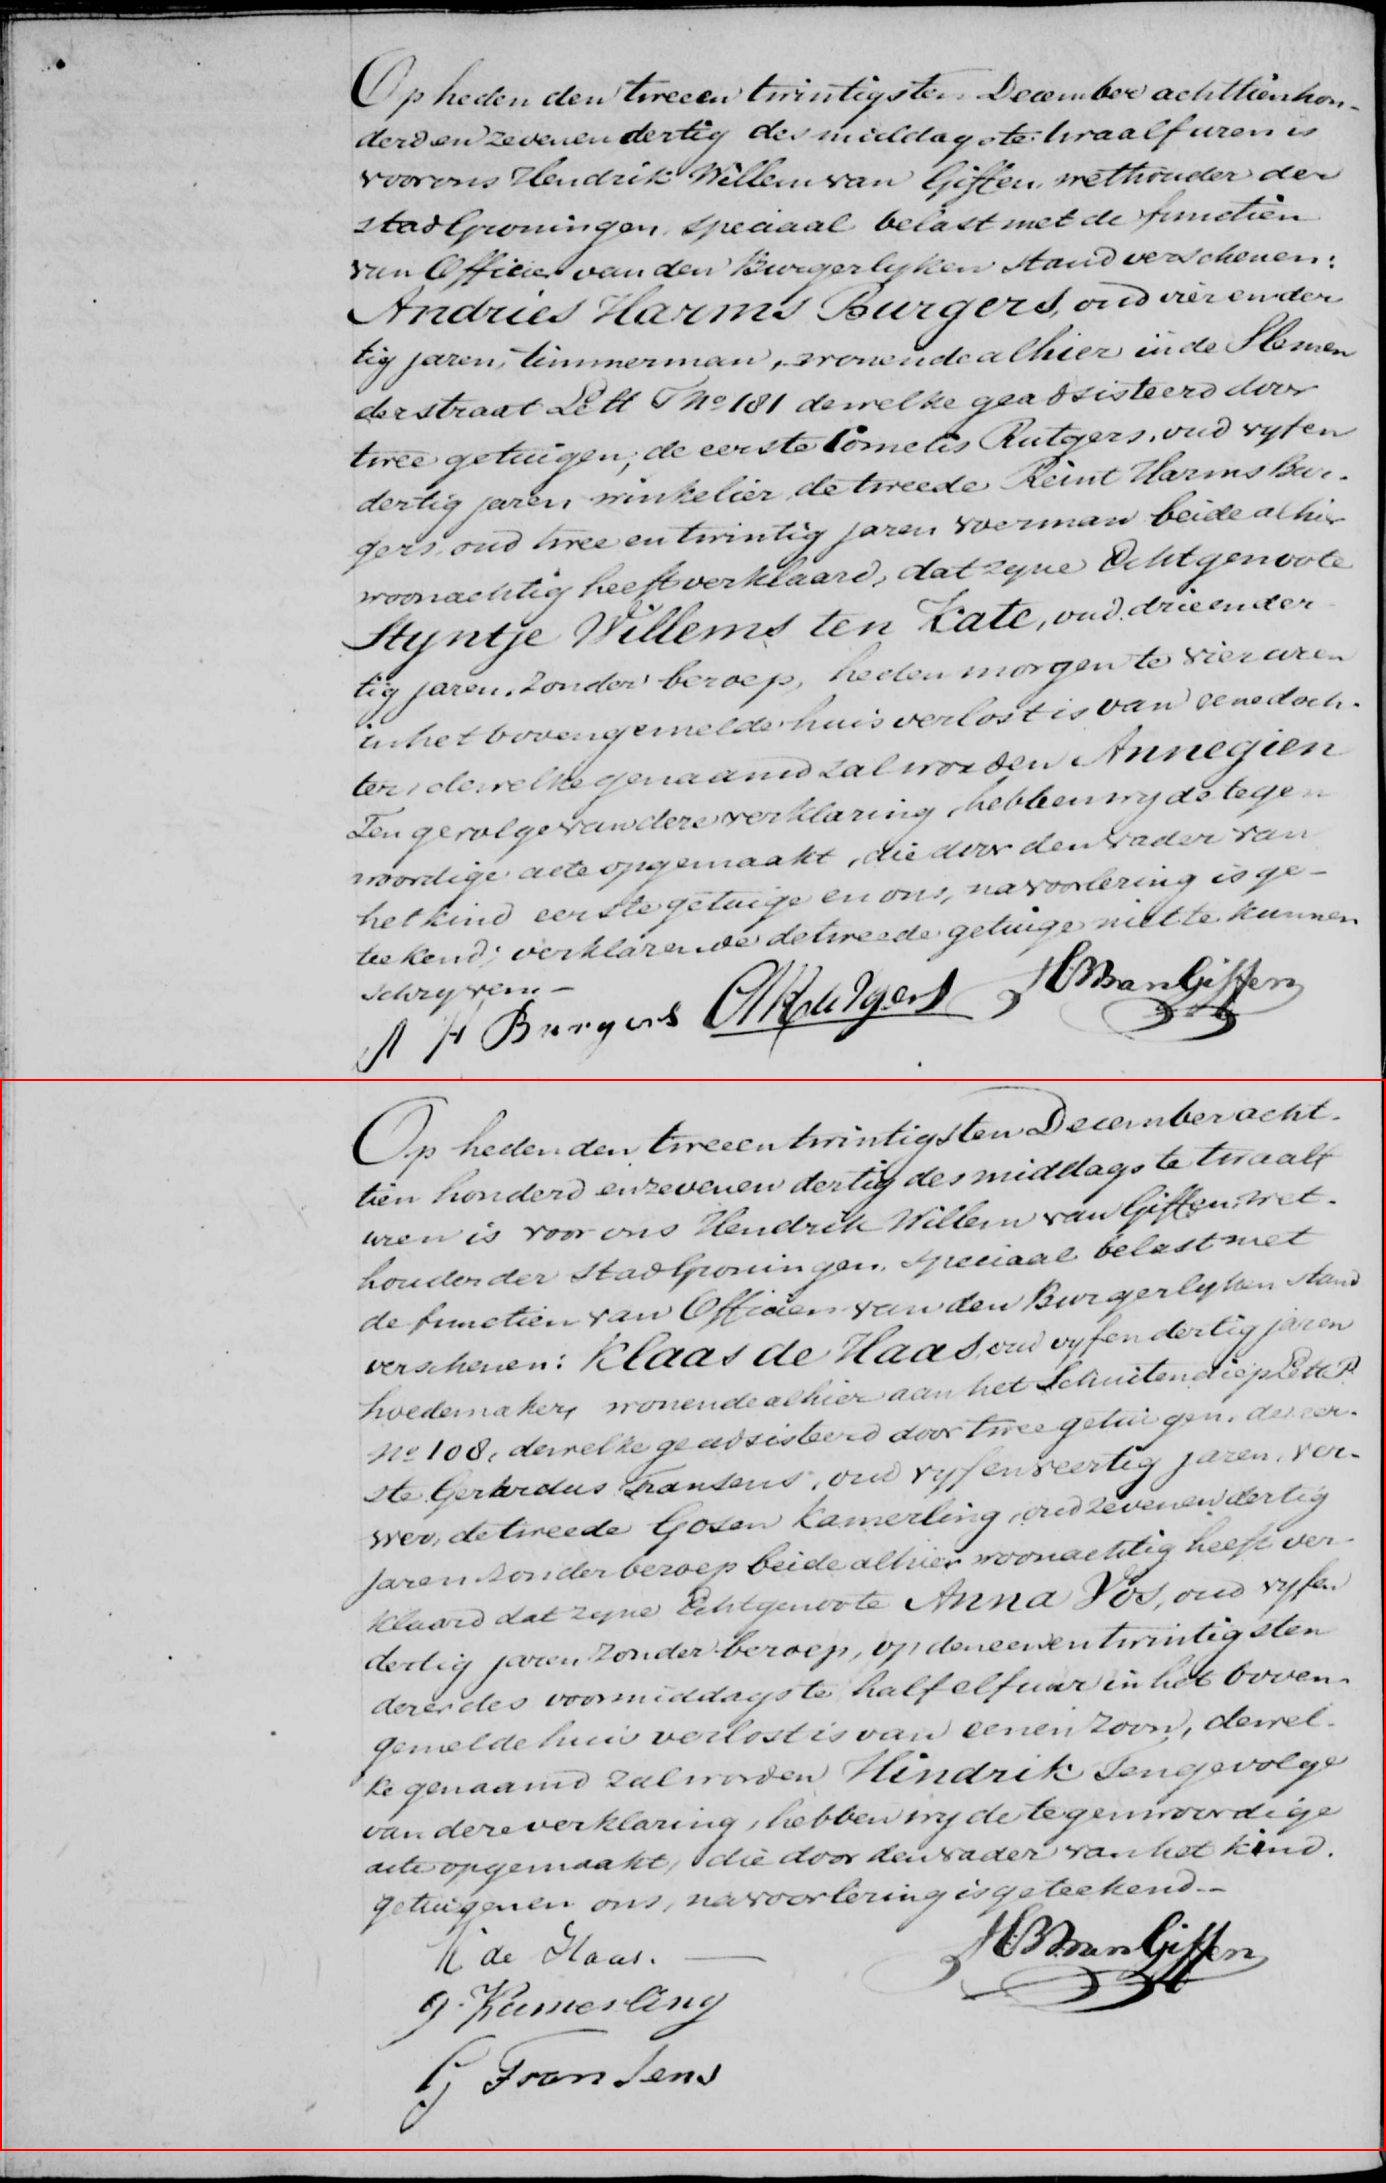 Op heden den tweeen twintigsten December achttienhon-
derd en zevenendertig des middags te twaalf uren is
voor ons Hendrik Willem van Giffen, wethouder der
stad Groningen, speciaal belast met de functien
van Officier van den Burgerlyken stand verschenen:
Andries Harms Burgers, oud vier en der
tig jaren, timmerman, wonende alhier in de
derstraat Lett No 181 dewelke geadsisteerd door
twee getuigen; de eerste Cornelis Rutgers, oud vyfen
dertig jaren winkelier de tweede Reint Harms Bur-
gers, oud twee en twintig jaren voerman beide alhier
woonachtig heeft verklaard, dat zyne Echtgenoote
Styntje Willems ten Kate, oud drieender
tig jaren, zonder beroep, heden morgen te vier uren
in het bovengemelde huis verlost is van eene doch-
ter, dewelke genaamd zal worden Annegien
Ten gevolge van deze verklaring, hebben wy de tegen
woordige acte opgemaakt, die door den vader van
het kind eerste getuige en ons, na voorlezing is ge-
teekend; verklarende de tweede getuige niet te kunnen
schryven. -
A H Burgers Rutgers HW van Giffen
Op heden den tweeen twintigsten December acht-
tien honderd en zevenen dertig des middags te twaalf
uren is voor ons Hendrik Willem van Giffen, wet-
houder der stad Groningen, speciaal belast met
de functien van Officier van den Burgerlyken stand
verschenen: Klaas de Haas, oud vyfen dertig jaren
hoedemaker, wonende alhier aan het Schuitendiep Lett P
No 108, dewelke geadsisteerd door twee getuigen, de eer-
ste Gerhardus Fransens, oud vyfenveertig jaren, ver-
wer, de tweede Gosen Kamerling, oud zevenen dertig
jaren zonder beroep beide alhier woonachtig heeft ver-
klaard dat zyne Echtgenoote Anna Vos, oud vyfen
dertig jaren zonder beroep, op den eenen twintigsten
dezer des voormiddags te half elf uur in het boven-
gemelde huis verlost is van eenen zoon, dewel-
ke genaamd zal worden Hindrik Ten gevolge
van deze verklaring, hebben wy de tegenwoordige
acte opgemaakt, die door den vader van het kind.
getuigen en ons, na voorlezing is geteekend. -
K de Haas. HW van Giffen
G. Kamerling
G Fransens